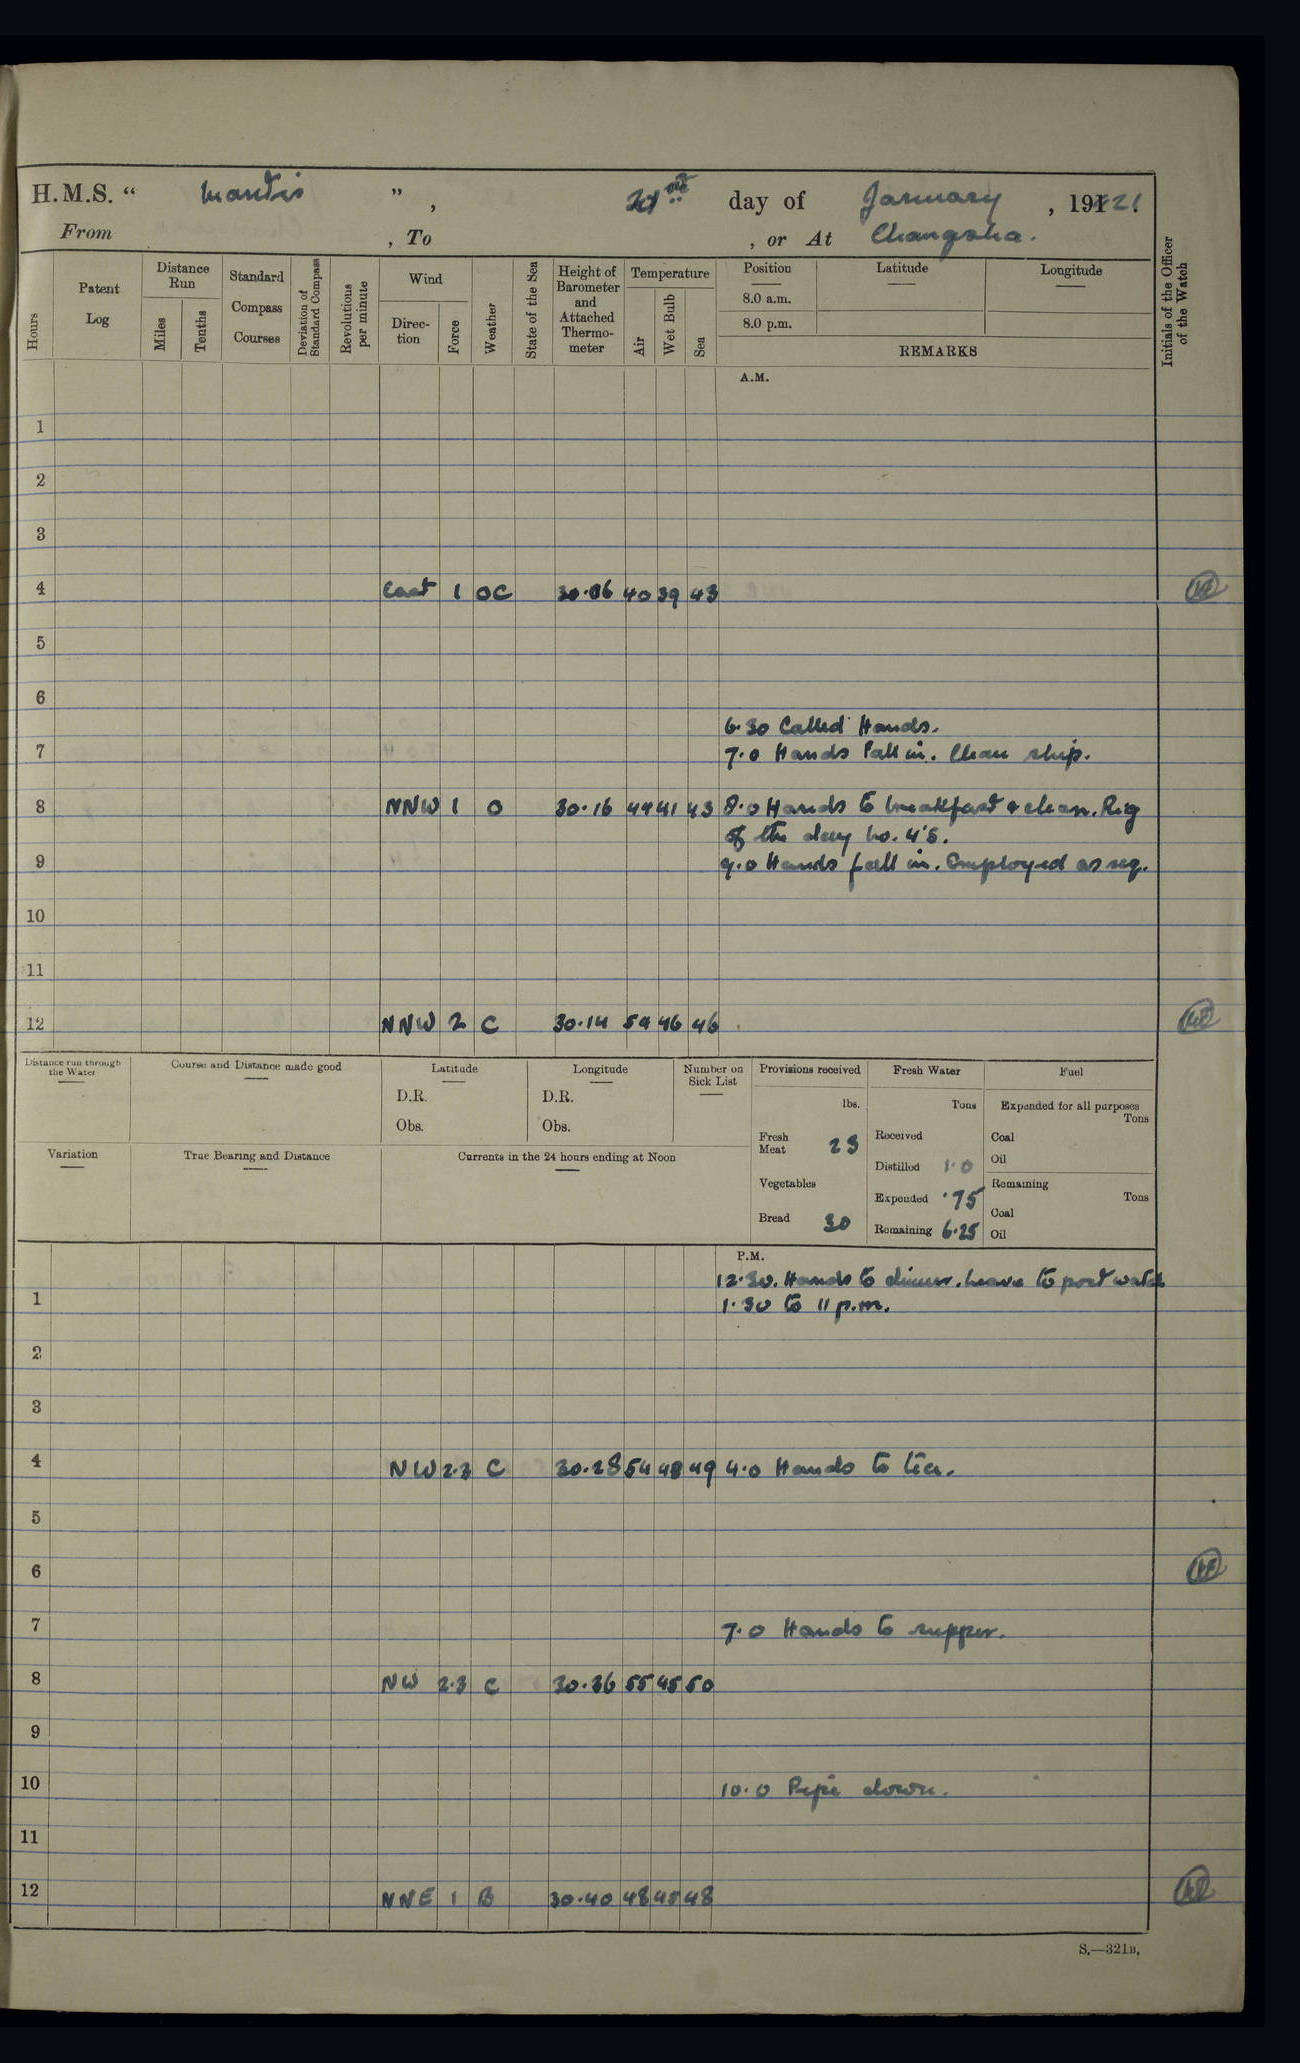 H.M.S. " Mantis ", day of January, 19121.
From , To , or At Changsha.
Hours
Patent Log
Distance Run
Miles
Tenths
Standard Compass Courses
Deviation of Standard Compass
Revolutions per minute
Wind
Direction
Force
Weather
State of the Sea
Height of Barometer and Attached Thermometer
Temperature
Air
Wet Bulb
Sea
Position
8.0 a.m.
8.0 p.m.
Latitude
Longitude
REMARKS
Initials of the Officer of the Watch
A.M.
1
2
3
4 East 1 OC 30.06 40 39 43
5
6
6.30 Called Hands.
7 7.0 Hands Fall in. Clean ship.
8 NNW 1 O 30.16 44 41 43 8.0 Hands to breakfast & clean. Rig
of the day No. 4's.
9 9.0 Hands fall in. Employed as req.
10
11
12 NNW 2 C 30.14 54 46 46
Distance run through the Water
Course and Distance made good
Latitude
D.R.
Obs.
Longitude
D.R.
Obs.
Number on Sick List
Variation
True Bearing and Distance
Currents in the 24 hours ending at Noon
Provisions received
lbs.
Fresh Meat 23
Vegetables
Bread 30
Fresh Water
Tons
Received
Distilled 1.0
Expended .75
Remaining 6.25
Fuel
Expended for all purposes
Tons
Coal
Oil
Remaining
Tons
Coal
Oil
P.M.
12.30. Hands to dinner. Leave to port watch
1 1.30 to 11 p.m.
2
3
4 NW 2.3 C 30.28 54 48 49 4.0 Hands to tea.
5
6
7 7.0 Hands to supper.
8 NW 2.3 C 30.36 55 45 50
9
10 10.0 Pipe down.
11
12 NNE 1 B 30.40 48 45 48
S.—321B.